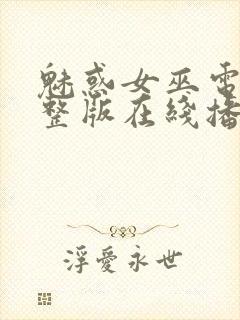 魅惑女巫電
整版在綫播
浮愛永世